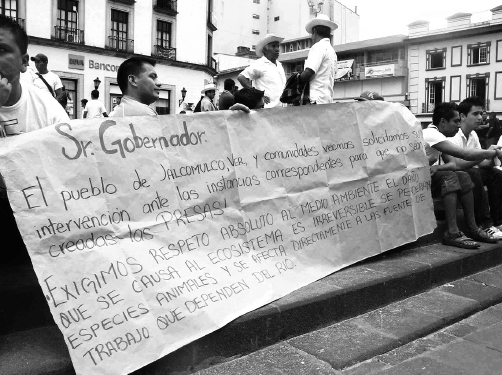 BBVA Bancomer
Scotiabank
Sr. Gobernador.
El pueblo de JALCOMULCO, VER, y comunidades vecinas solicitamos su
intervención ante las instancias correspondientes para que no sean
creadas las PRESAS!
¡EXIGIMOS RESPETO ABSOLUTO AL MEDIO AMBIENTE EL DAÑO
QUE SE CAUSA AL ECOSISTEMA ES IRREVERSIBLE SE PERDERAN
ESPECIES ANIMALES Y SE AFECTA DIRECTAMENTE A LAS FUENTE DE
TRABAJO QUE DEPENDEN DEL RIO.